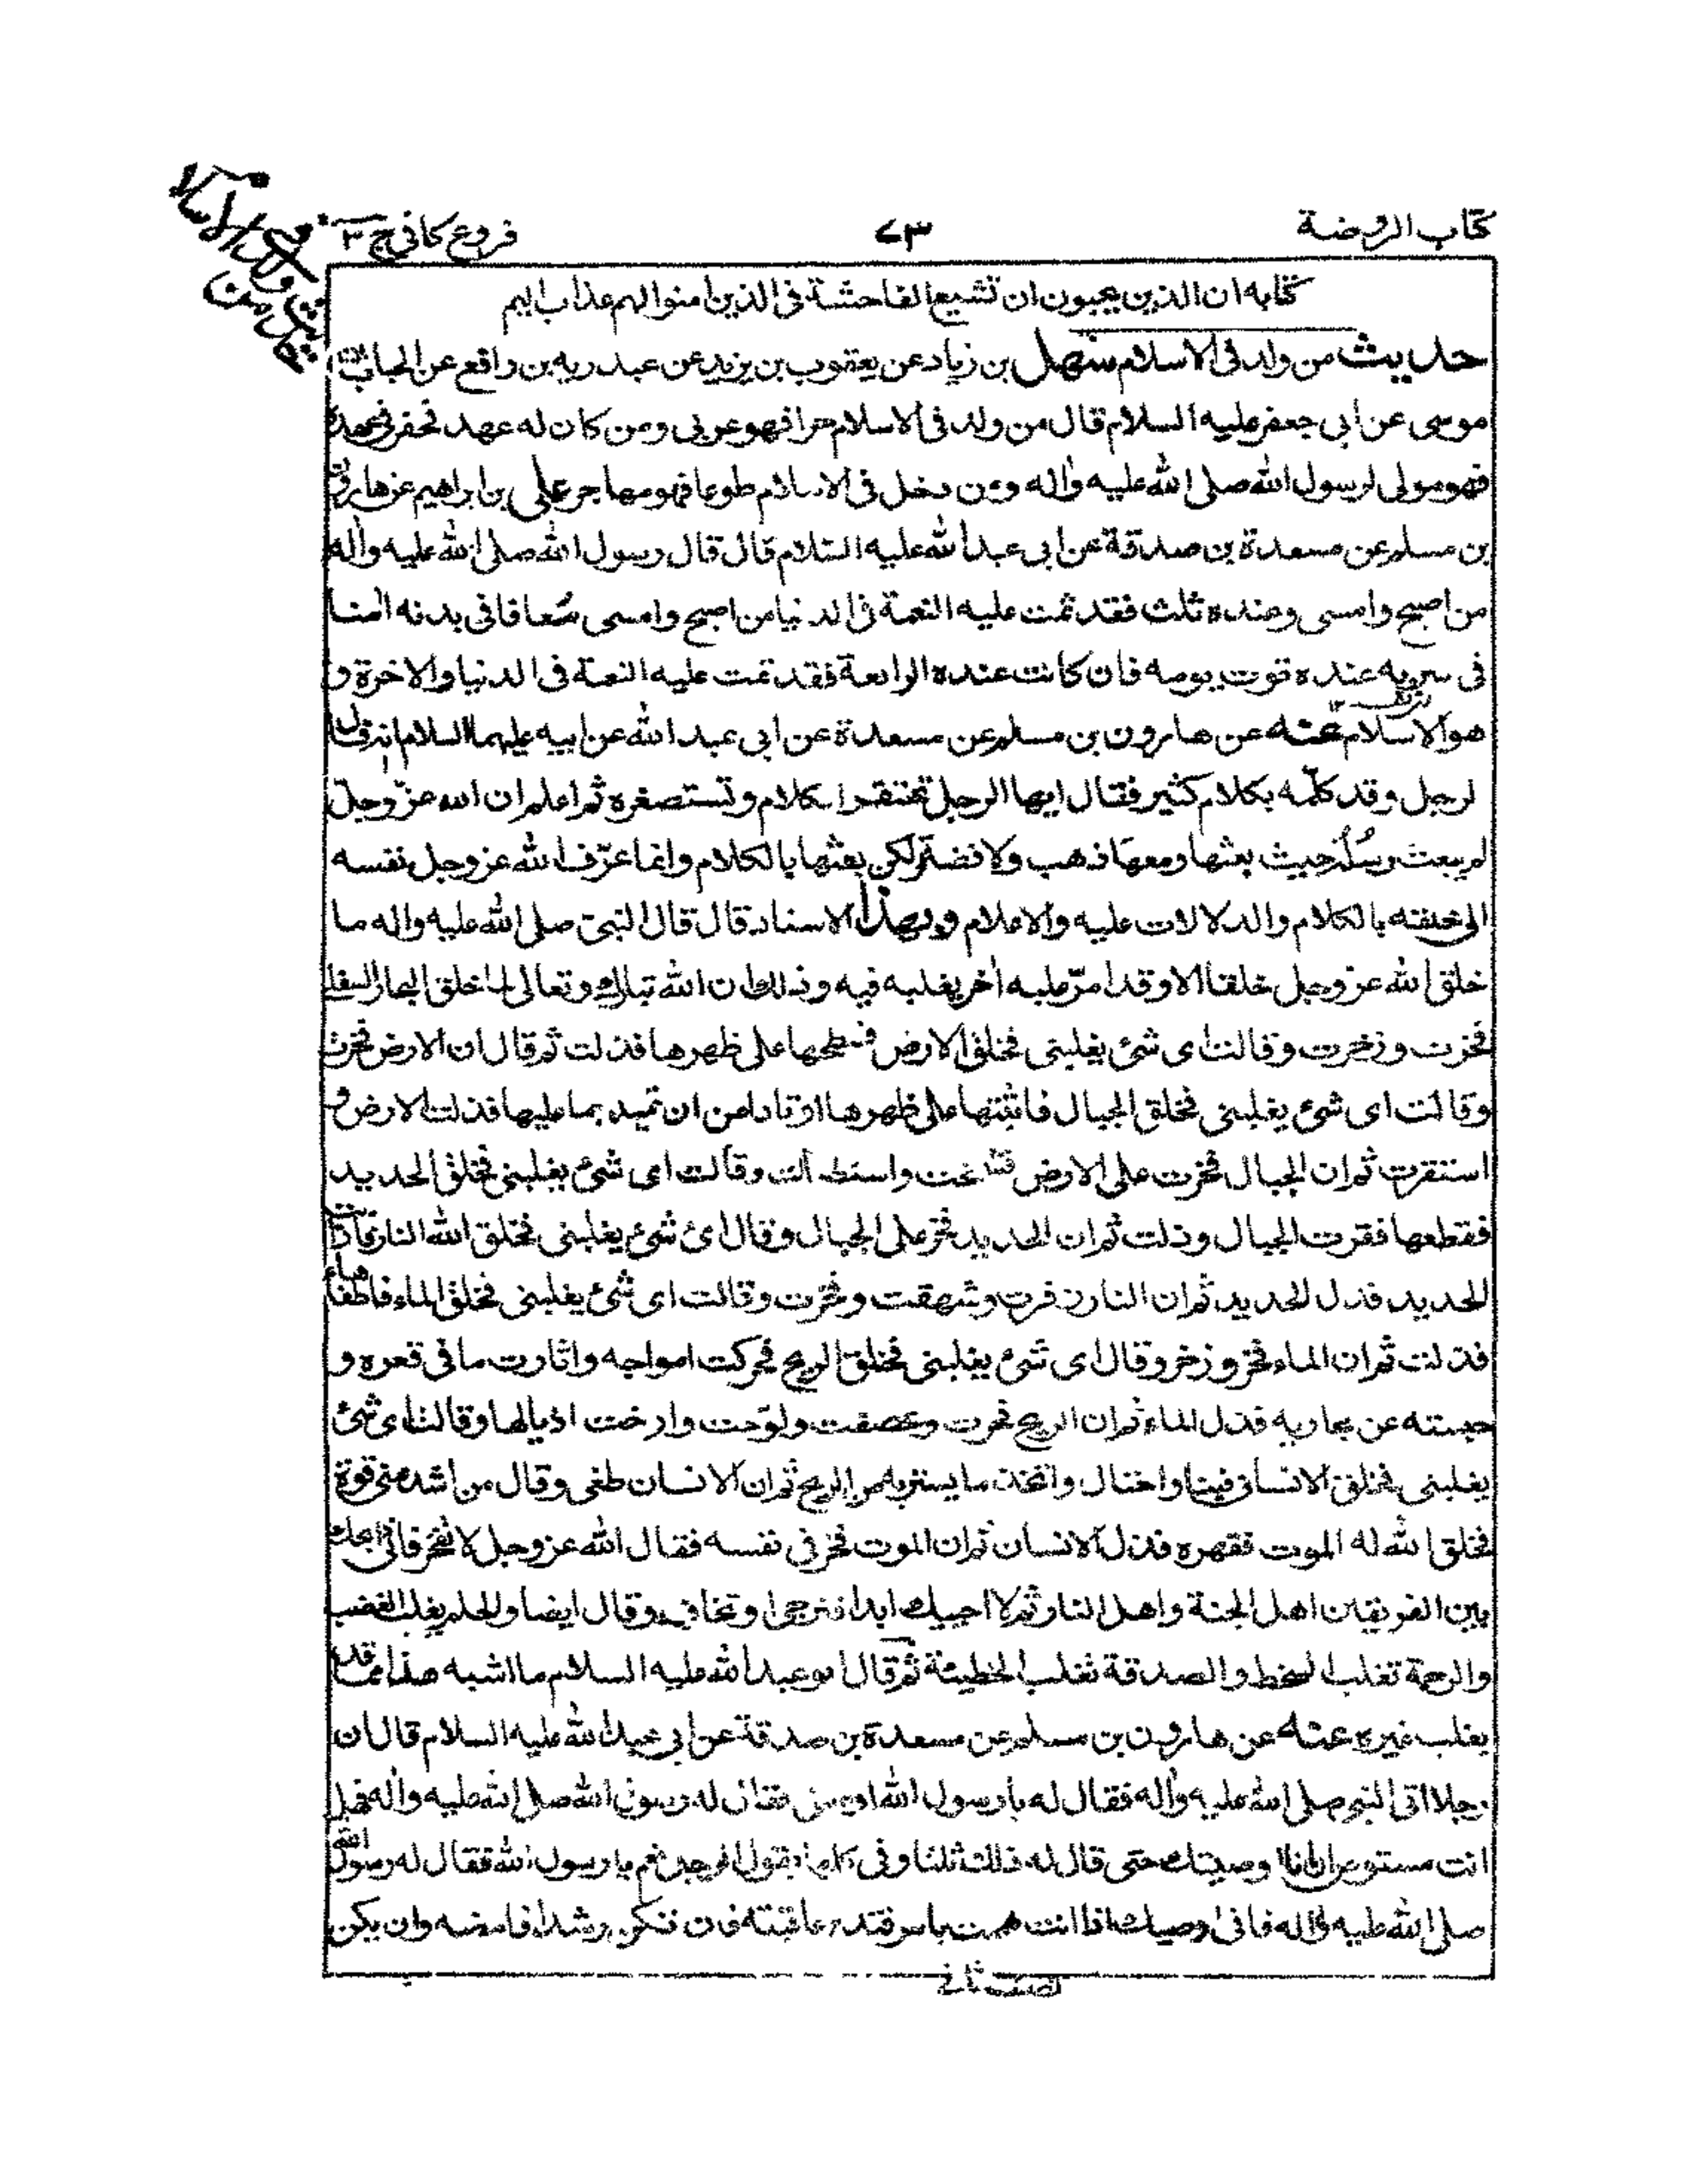 كتاب الروضة ٧٣ فروع كافي ج ٣
كتابه ان الذين يحبون ان تشيع الفاحشة فى الذين امنوا لهم عذاب اليم
حديث من ولد فى الاسلام سهل بن زياد عن يعقوب بن يزيد عن عبد ربه بن رافع عن الحباب بن
موسى عن ابى جعفر عليه السلام قال من ولد فى الاسلام حرا فهو عربى ومن كان له عهد فخفر فى عهده
فهو مولى لرسول الله صلى الله عليه واله ومن دخل فى الاسلام طوعا فهو مهاجر على بن ابراهيم عن هارون
بن مسلم عن مسعدة بن صدقة عن ابى عبد الله عليه السلام قال قال رسول الله صلى الله عليه واله
من اصبح وامسى وعنده ثلث فقد تمت عليه النعمة فى الدنيا من اصبح وامسى معافا فى بدنه امنا
فى سربه عنده قوت يومه فان كانت عنده الرابعة فقد تمت عليه النعمة فى الدنيا والاخرة و
هو الاسلام عنه عن هارون بن مسلم عن مسعدة عن ابى عبد الله عن ابيه عليهما السلام انه قال
لرجل وقد كلّمه بكلام كثير فقال ايها الرجل تحتقر الكلام وتستصغره ثم اعلم ان الله عزّ وجلّ
لم يبعث رسُلُه حيث بعثها ومعها ذهب ولا فضة ولكن بعثها بالكلام وانما عرّف الله عز وجل نفسه
الى خلقه بالكلام والدلالات عليه والاعلام وبهذا الاسناد قال قال النبىّ صلى الله عليه واله ما
خلق الله عز وجل خلقا الا وقد امرّ عليه اخر يغلبه فيه وذلك ان الله تبارك وتعالى لما خلق البحار السفلى
فخرت وزخرت وقالت اى شئ يغلبنى فخلق الارض فسطحها على ظهرها فذلت ثم قال ان الارض فخرت
وقالت اى شئ يغلبنى فخلق الجبال فاثبتها على ظهرها اوتادا من ان تميد بما عليها فذلت الارض و
استقرت ثم ان الجبال فخرت على الارض فشمخت واستطالت وقالت اى شئ يغلبنى فخلق الحديد
فقطعها فقرت الجبال وذلت ثم ان الحديد فخر على الجبال وقال اى شئ يغلبنى فخلق الله النار فاذابت
الحديد فذل الحديد ثم ان النار زفرت وشهقت وفخرت وقالت اى شئ يغلبنى فخلق الماء فاطفاها
فذلت ثم ان الماء فخر وزخر وقال اى شئ يغلبنى فخلق الريح فحركت امواجه واثارت ما فى قعره و
حبسته عن مجاريه فذل الماء ثم ان الريح فخرت وعصفت ولوّحت وارخت اذيالها وقالت اى شئ
يغلبنى فخلق الانسان فبنا واحتال واتخذ ما يستتر به من الريح ثم ان الانسان طغى وقال من اشد منى قوة
فخلق الله له الموت فقهره فذل الانسان ثم ان الموت فخر فى نفسه فقال الله عز وجل لا تفخر فانى ذابحك
بين الفريقين اهل الجنة واهل النار ثم لا احييك ابدا فترجى او تخاف وقال ايضا والحلم يغلب الغضب
والرحمة تغلب السخط والصدقة تغلب الخطيئة ثم قال ابو عبد الله عليه السلام ما اشبه هذا مما قد
يغلب غيره عنه عن هارون بن مسلم عن مسعدة بن صدقة عن ابى عبد الله عليه السلام قال ان
رجلا اتى النبى صلى الله عليه واله فقال له يا رسول الله اوصنى فقال له رسول الله صلى الله عليه واله فهل
انت مستوص ان انا اوصيتك حتى قال له ذلك ثلثا وفى كلها يقول الرجل نعم يا رسول الله فقال له رسول الله
صلى الله عليه واله فانى اوصيك اذا انت هممت بامر فتدبر عاقبته فان تكن رشدا فامضه وان يكن
نصف ثانى